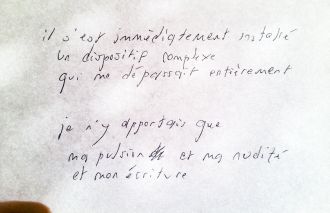 il s'est immédiatement installé
un dispositif complexe
qui me dépassait entièrement
je n'y apportais que
ma pulsion et ma nudité
et mon écriture